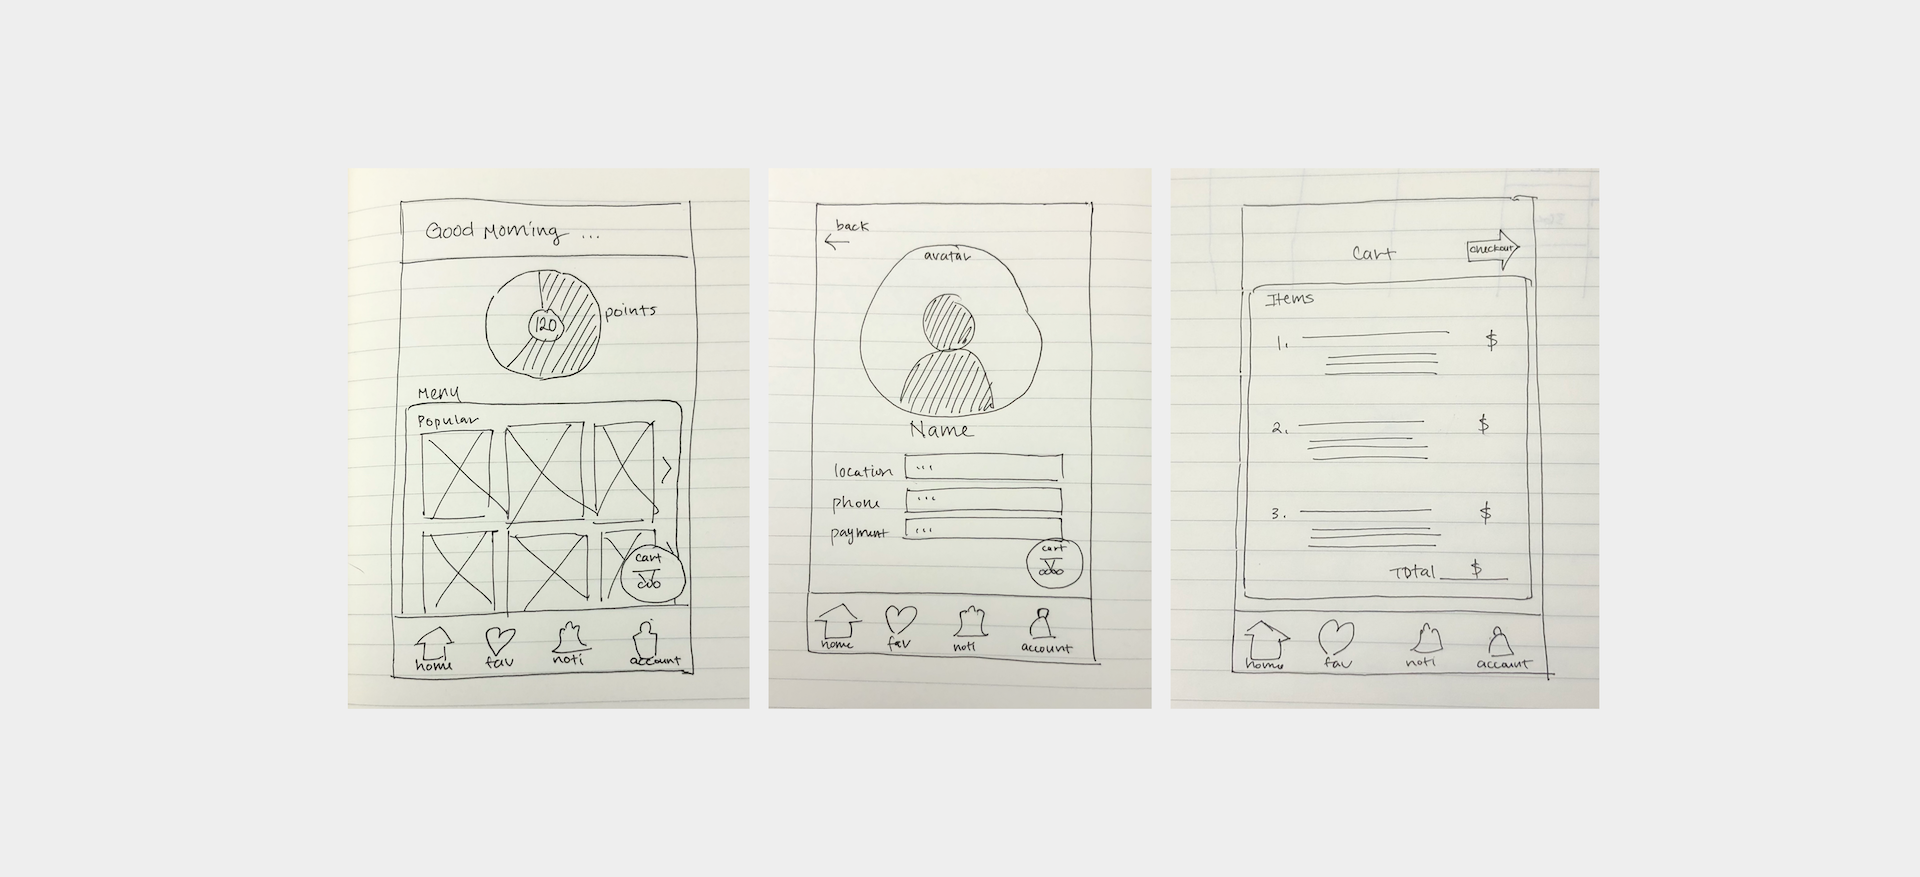 Good Morning ...
120
points
Menu
Popular
cart
home
fav
noti
account
back
avatar
Name
location ...
phone ...
payment ...
cart
home
fav
noti
account
Cart
checkout
Items
1. $
2. $
3. $
Total $
home
fav
noti
account